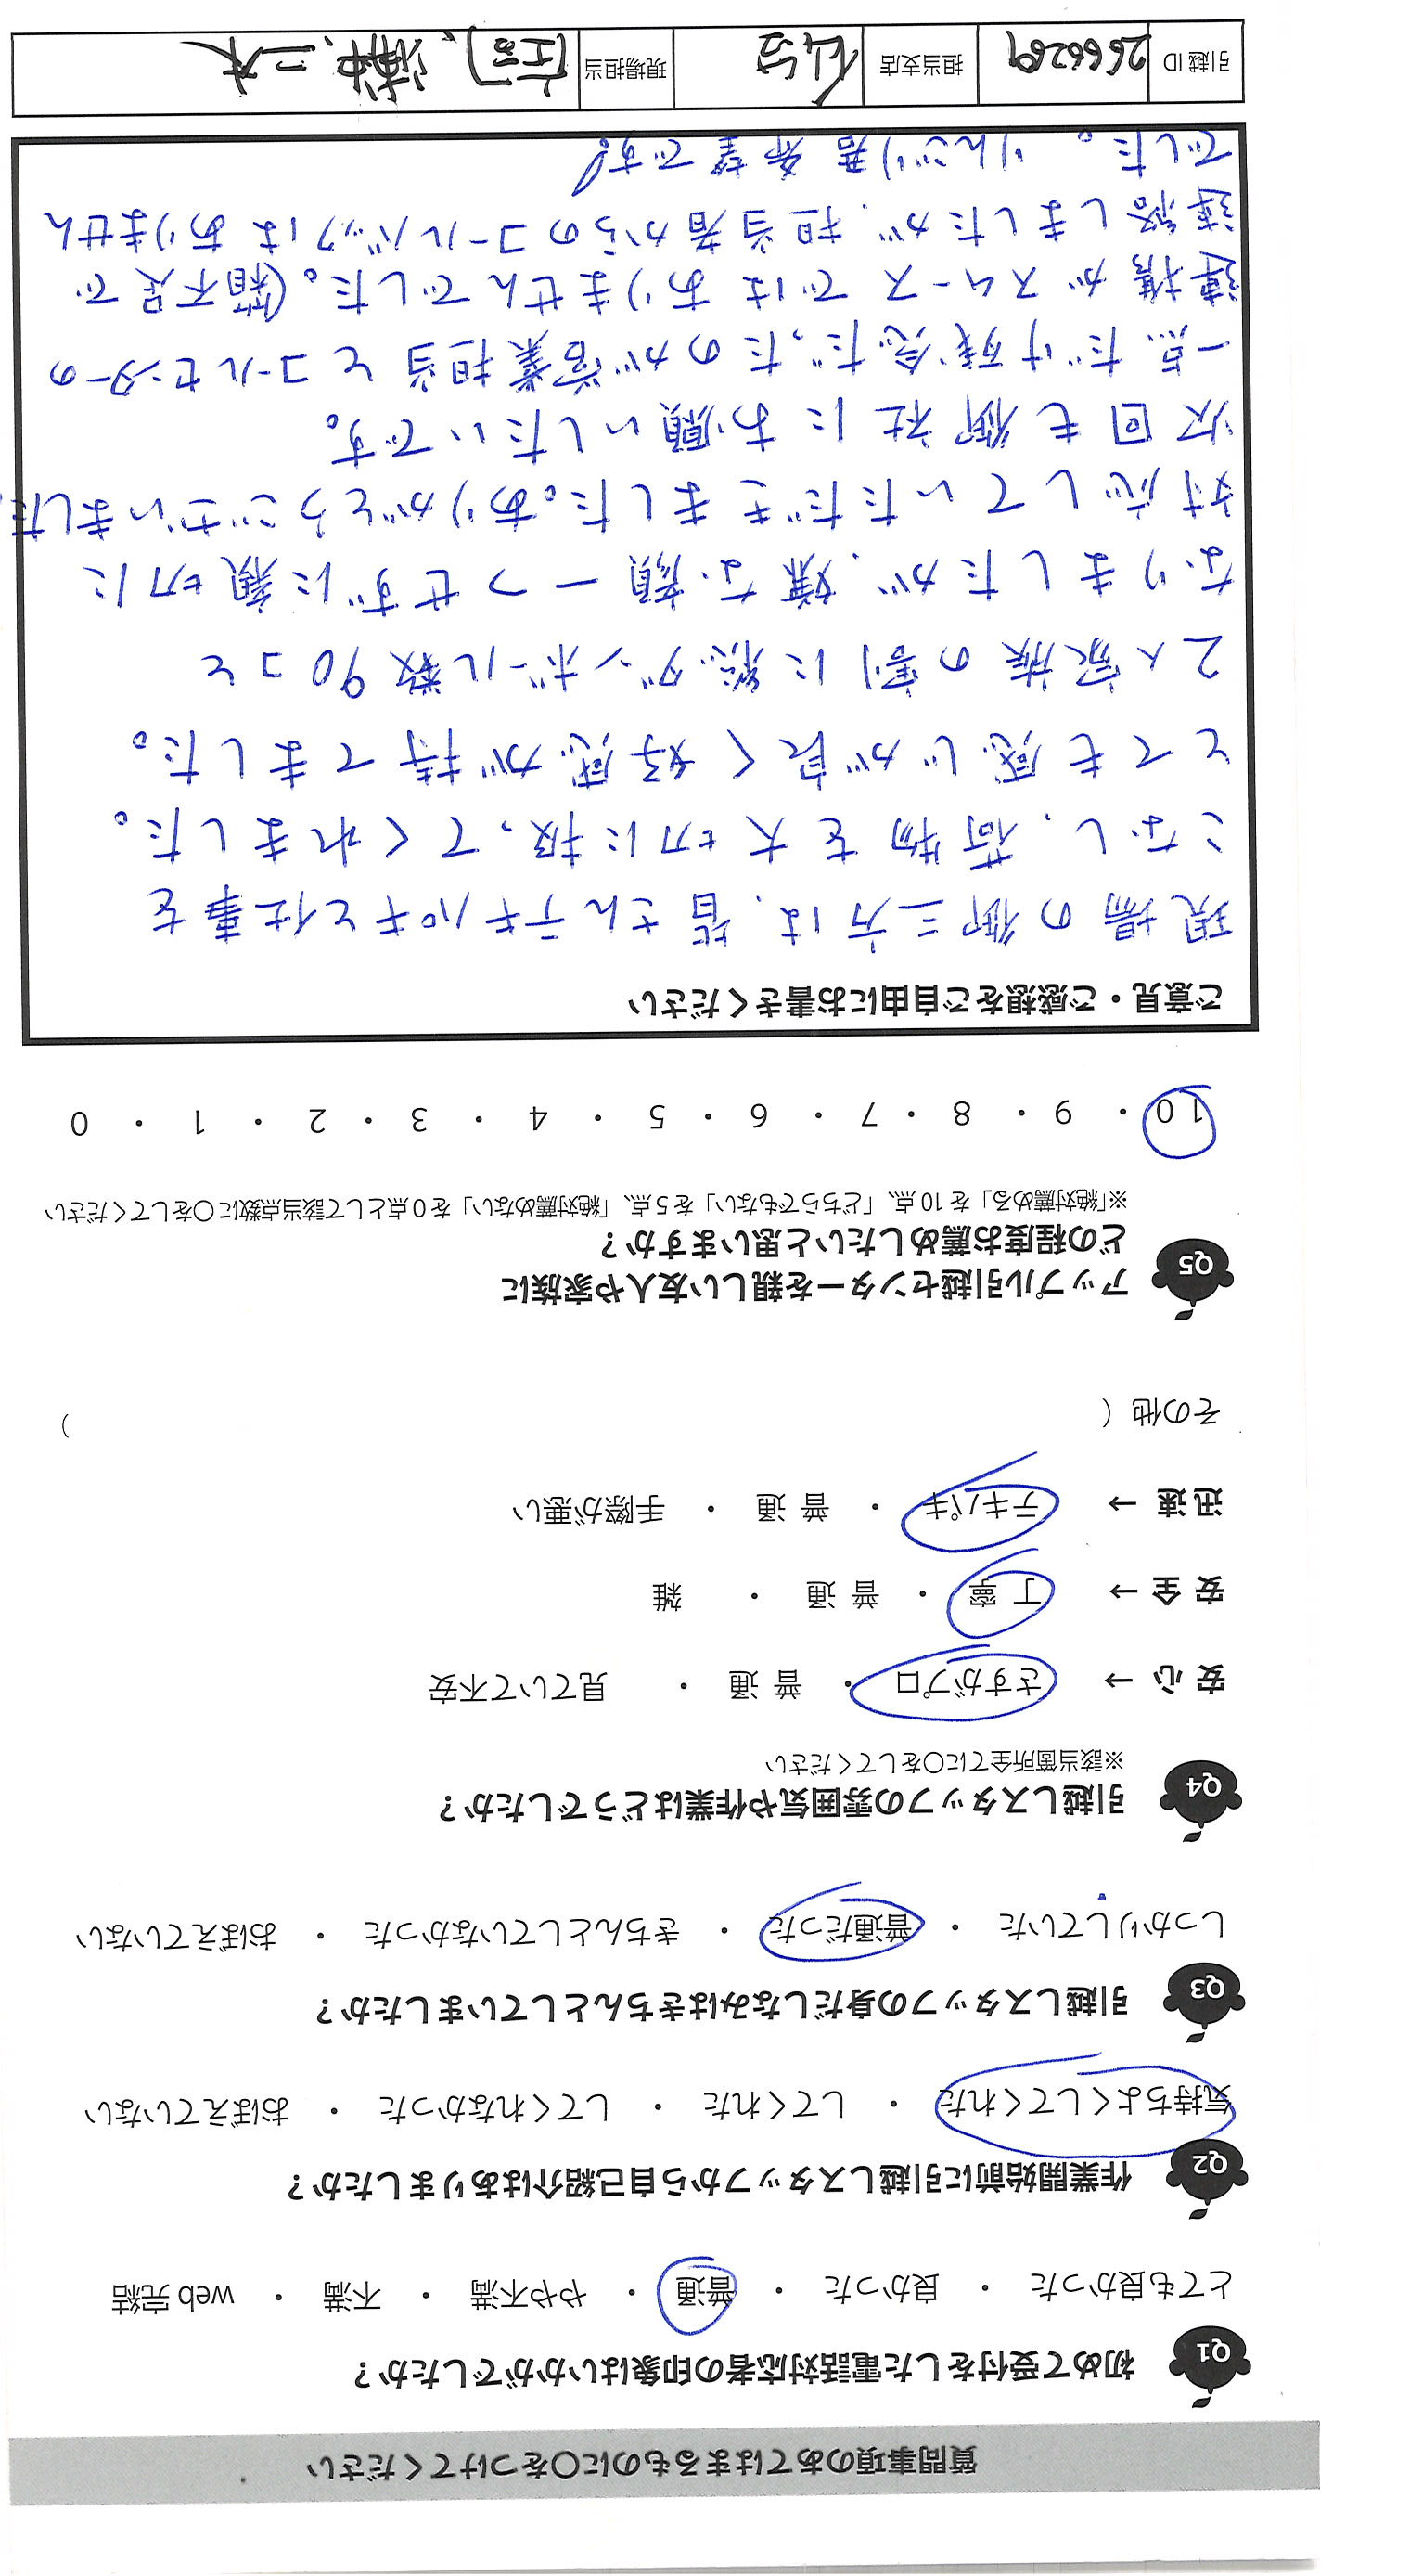 質問事項のあてはまるものに〇をつけてください
Q1 初めて受付をした電話対応者の印象はいかがでしたか？
とても良かった ・ 良かった ・ 普通 ・ やや不満 ・ 不満 ・ web 完結
Q2 作業開始前に引越しスタッフから自己紹介はありましたか？
気持ちよくしてくれた ・ してくれた ・ してくれなかった ・ おぼえていない
Q3 引越しスタッフの身だしなみはきちんとしていましたか？
しっかりしていた ・ 普通だった ・ きちんとしていなかった ・ おぼえていない
Q4 引越しスタッフの雰囲気や作業はどうでしたか？
※該当箇所全てに〇をしてください
安 心 → さすがプロ ・ 普 通 ・ 見ていて不安
安 全 → 丁 寧 ・ 普 通 ・ 雑
迅 速 → テキパキ ・ 普 通 ・ 手際が悪い
その他（ ）
Q5 アップル引越センターを親しい友人や家族に
どの程度お薦めしたいと思いますか？
※「絶対薦める」を 10 点、「どちらでもない」を 5 点、「絶対薦めない」を 0 点として該当点数に〇をしてください
10 ・ 9 ・ 8 ・ 7 ・ 6 ・ 5 ・ 4 ・ 3 ・ 2 ・ 1 ・ 0
ご意見・ご感想をご自由にお書きください
現場の御三方は、皆さんテキパキと仕事を
こなし、荷物を大切に扱ってくれました。
とても感じが良く好感が持てました。
2人家族の割に総ダンボール数90コと
なりましたが、嫌な顔一つせずに親切に
対応していただきました。ありがとうございました。
次回も御社にお願いしたいです。
一点だけ残念だったのが営業担当とコールセンターの
連携がスムースではありませんでした。(箱不足で
連絡しましたが、担当者からのコールバックはありません
でした。りんごり君希望です!
引越 ID 2666289 担当支店 仙台 現場担当 庄司、